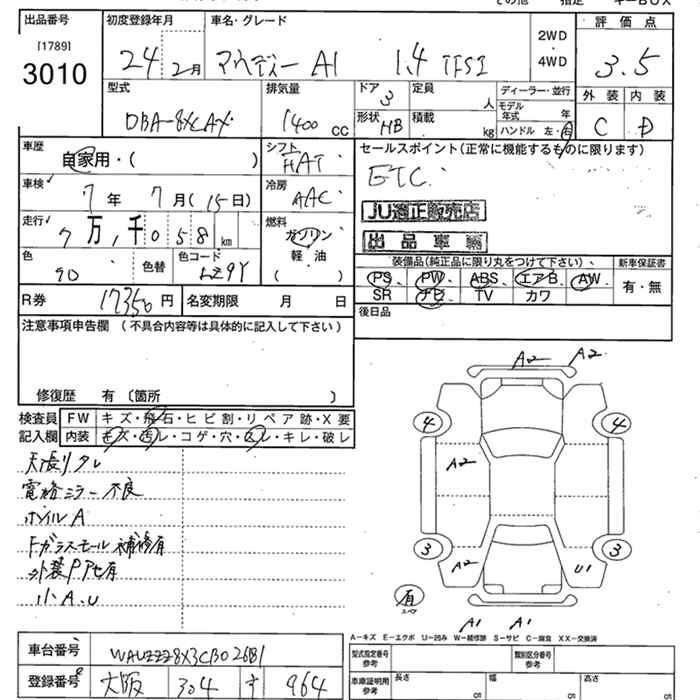 出品番号
[1789]
3010
初度登録年月
24年 2月
車名・グレード
アウディー A1 1.4 TFSI
2WD
4WD
評価点
3.5
外装 内装
C D
型式
DBA-8XCAX
排気量
1400 cc
ドア
3
形状
HB
定員
人
積載
kg
ディーラー・並行
モデル年式 年
ハンドル 左・右
車歴
自家用・( )
シフト
FAT
セールスポイント(正常に機能するものに限ります)
ETC
JU適正販売店
出品車輌
車検
7年 7月(15日)
冷房
AAC
走行
7万,千058km
燃料
ガソリン
軽油
( )
色
90
色替
色コード
LZ9Y
装備品(純正品に限り丸をつけて下さい)、
PS、PW、ABS、エアB、AW、
SR ナビ TV カワ
新車保証書
有・無
R券
17350円
名変期限 月 日
後日品
注意事項申告欄 (不具合内容等は具体的に記入して下さい)
修復歴 有〔箇所 〕
検査員
記入欄
FW キズ・飛石・ヒビ割・リペア跡・X要
内装 キズ・汚レ・コゲ・穴・スレ・キレ・破レ
天張りタレ
電格ミラー不良
ホイルA
Fガラスモール補修有
外装PP色有
小A.U
A2 A2
4 4
A2
3 3
A2 U1
有
スペア
A1 A1
A-キズ E-エクボ U-凹み W-補修跡 S-サビ C-腐食 XX-交換済
車台番号
WAUZZZ8X3CB026181
登録番号
大阪 304 す 964
型式指定番号
参考
類別区分番号
参考
車庫証明用
参考
長さ
cm
幅
cm
高さ
cm